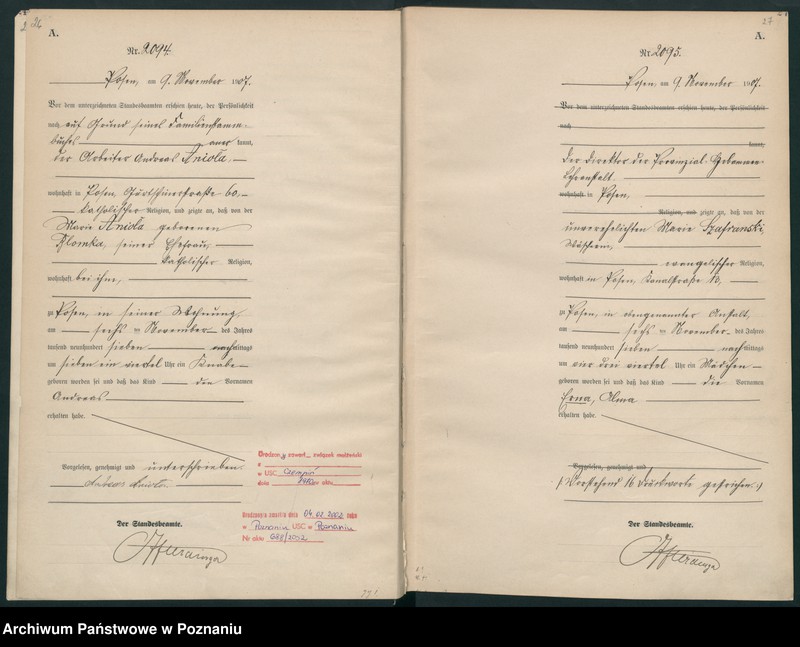 26
A.
Nr. 2094.
Posen, am 9. November 1907.
Vor dem unterzeichneten Standesbeamten erschien heute, der Persönlichkeit
nach auf Grund seines Familienstamm-
buches anerkannt,
der Arbeiter Andreas Anioła
wohnhaft in Posen, 60,
katholischer Religion, und zeigte an, daß von der
Marie Anioła geborenen
seiner Ehefrau,
katholischer Religion,
wohnhaft bei ihm,
zu Posen, in seiner Wohnung
am sechsten November des Jahres
tausend neunhundert sieben nachmittags
um sieben ein viertel Uhr ein Knabe
geboren worden sei und daß das Kind den Vornamen
Andreas
erhalten habe.
Vorgelesen, genehmigt und unterschrieben
Anioła
Der Standesbeamte.
w USC Czempiń
Urodzenia zmarł/a dnia 04.02.2002 roku
w Poznaniu USC w Poznaniu
Nr aktu 688/2002
27
A.
Nr. 2095.
Posen, am 9. November 1907.
Vor dem unterzeichneten Standesbeamten erschien heute, der Persönlichkeit
nach
kannt,
Der Direktor der Provinzial-Hebammen-
Lehranstalt
wohnhaft in Posen,
Religion, und zeigte an, daß von der
unverehelichten Marie Szafranski,
evangelischer Religion,
wohnhaft in Posen, Kanalstraße 16,
zu Posen, in obengenannter Anstalt,
am sechsten November des Jahres
tausend neunhundert sieben nachmittags
um vier drei viertel Uhr ein Mädchen
geboren worden sei und daß das Kind die Vornamen
Erna, Alma
erhalten habe.
Vorgelesen, genehmigt und
(Vorstehend 16 Druckworte gestrichen.)
Der Standesbeamte.
Archiwum Państwowe w Poznaniu